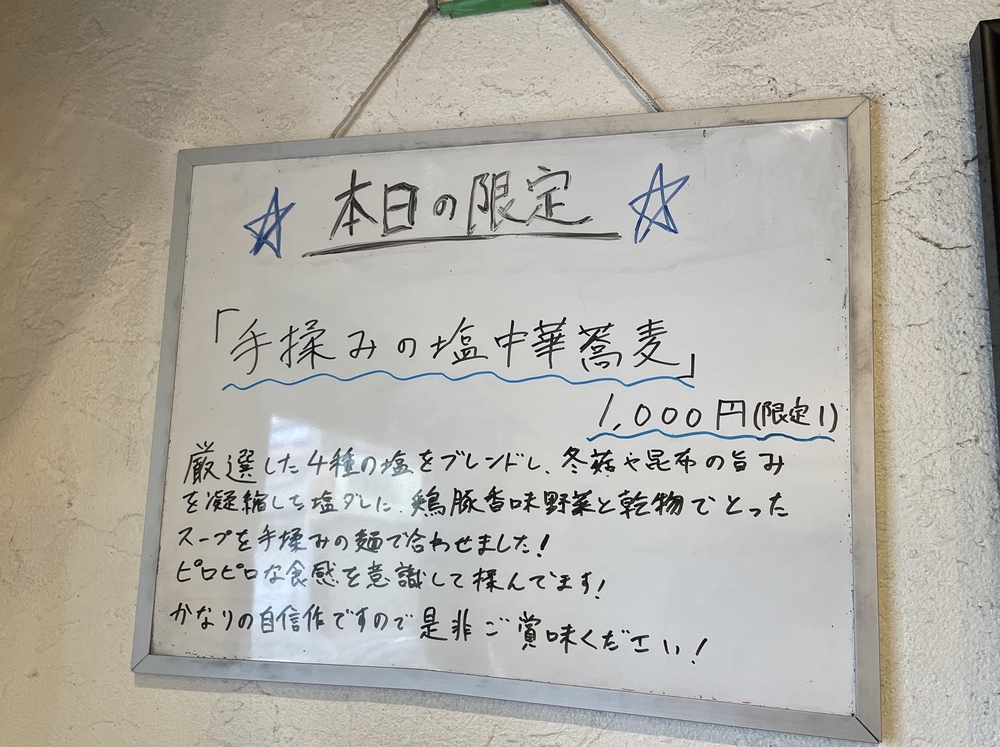 ☆ 本日の限定 ☆
「手揉みの塩中華蕎麦」
1,000円(限定1)
厳選した4種の塩をブレンドし、冬菇や昆布の旨み
を凝縮した塩ダレに、鶏豚香味野菜と乾物でとった
スープを手揉みの麺で合わせました!
ピロピロな食感を意識して揉んでます!
かなりの自信作ですので是非ご賞味ください!